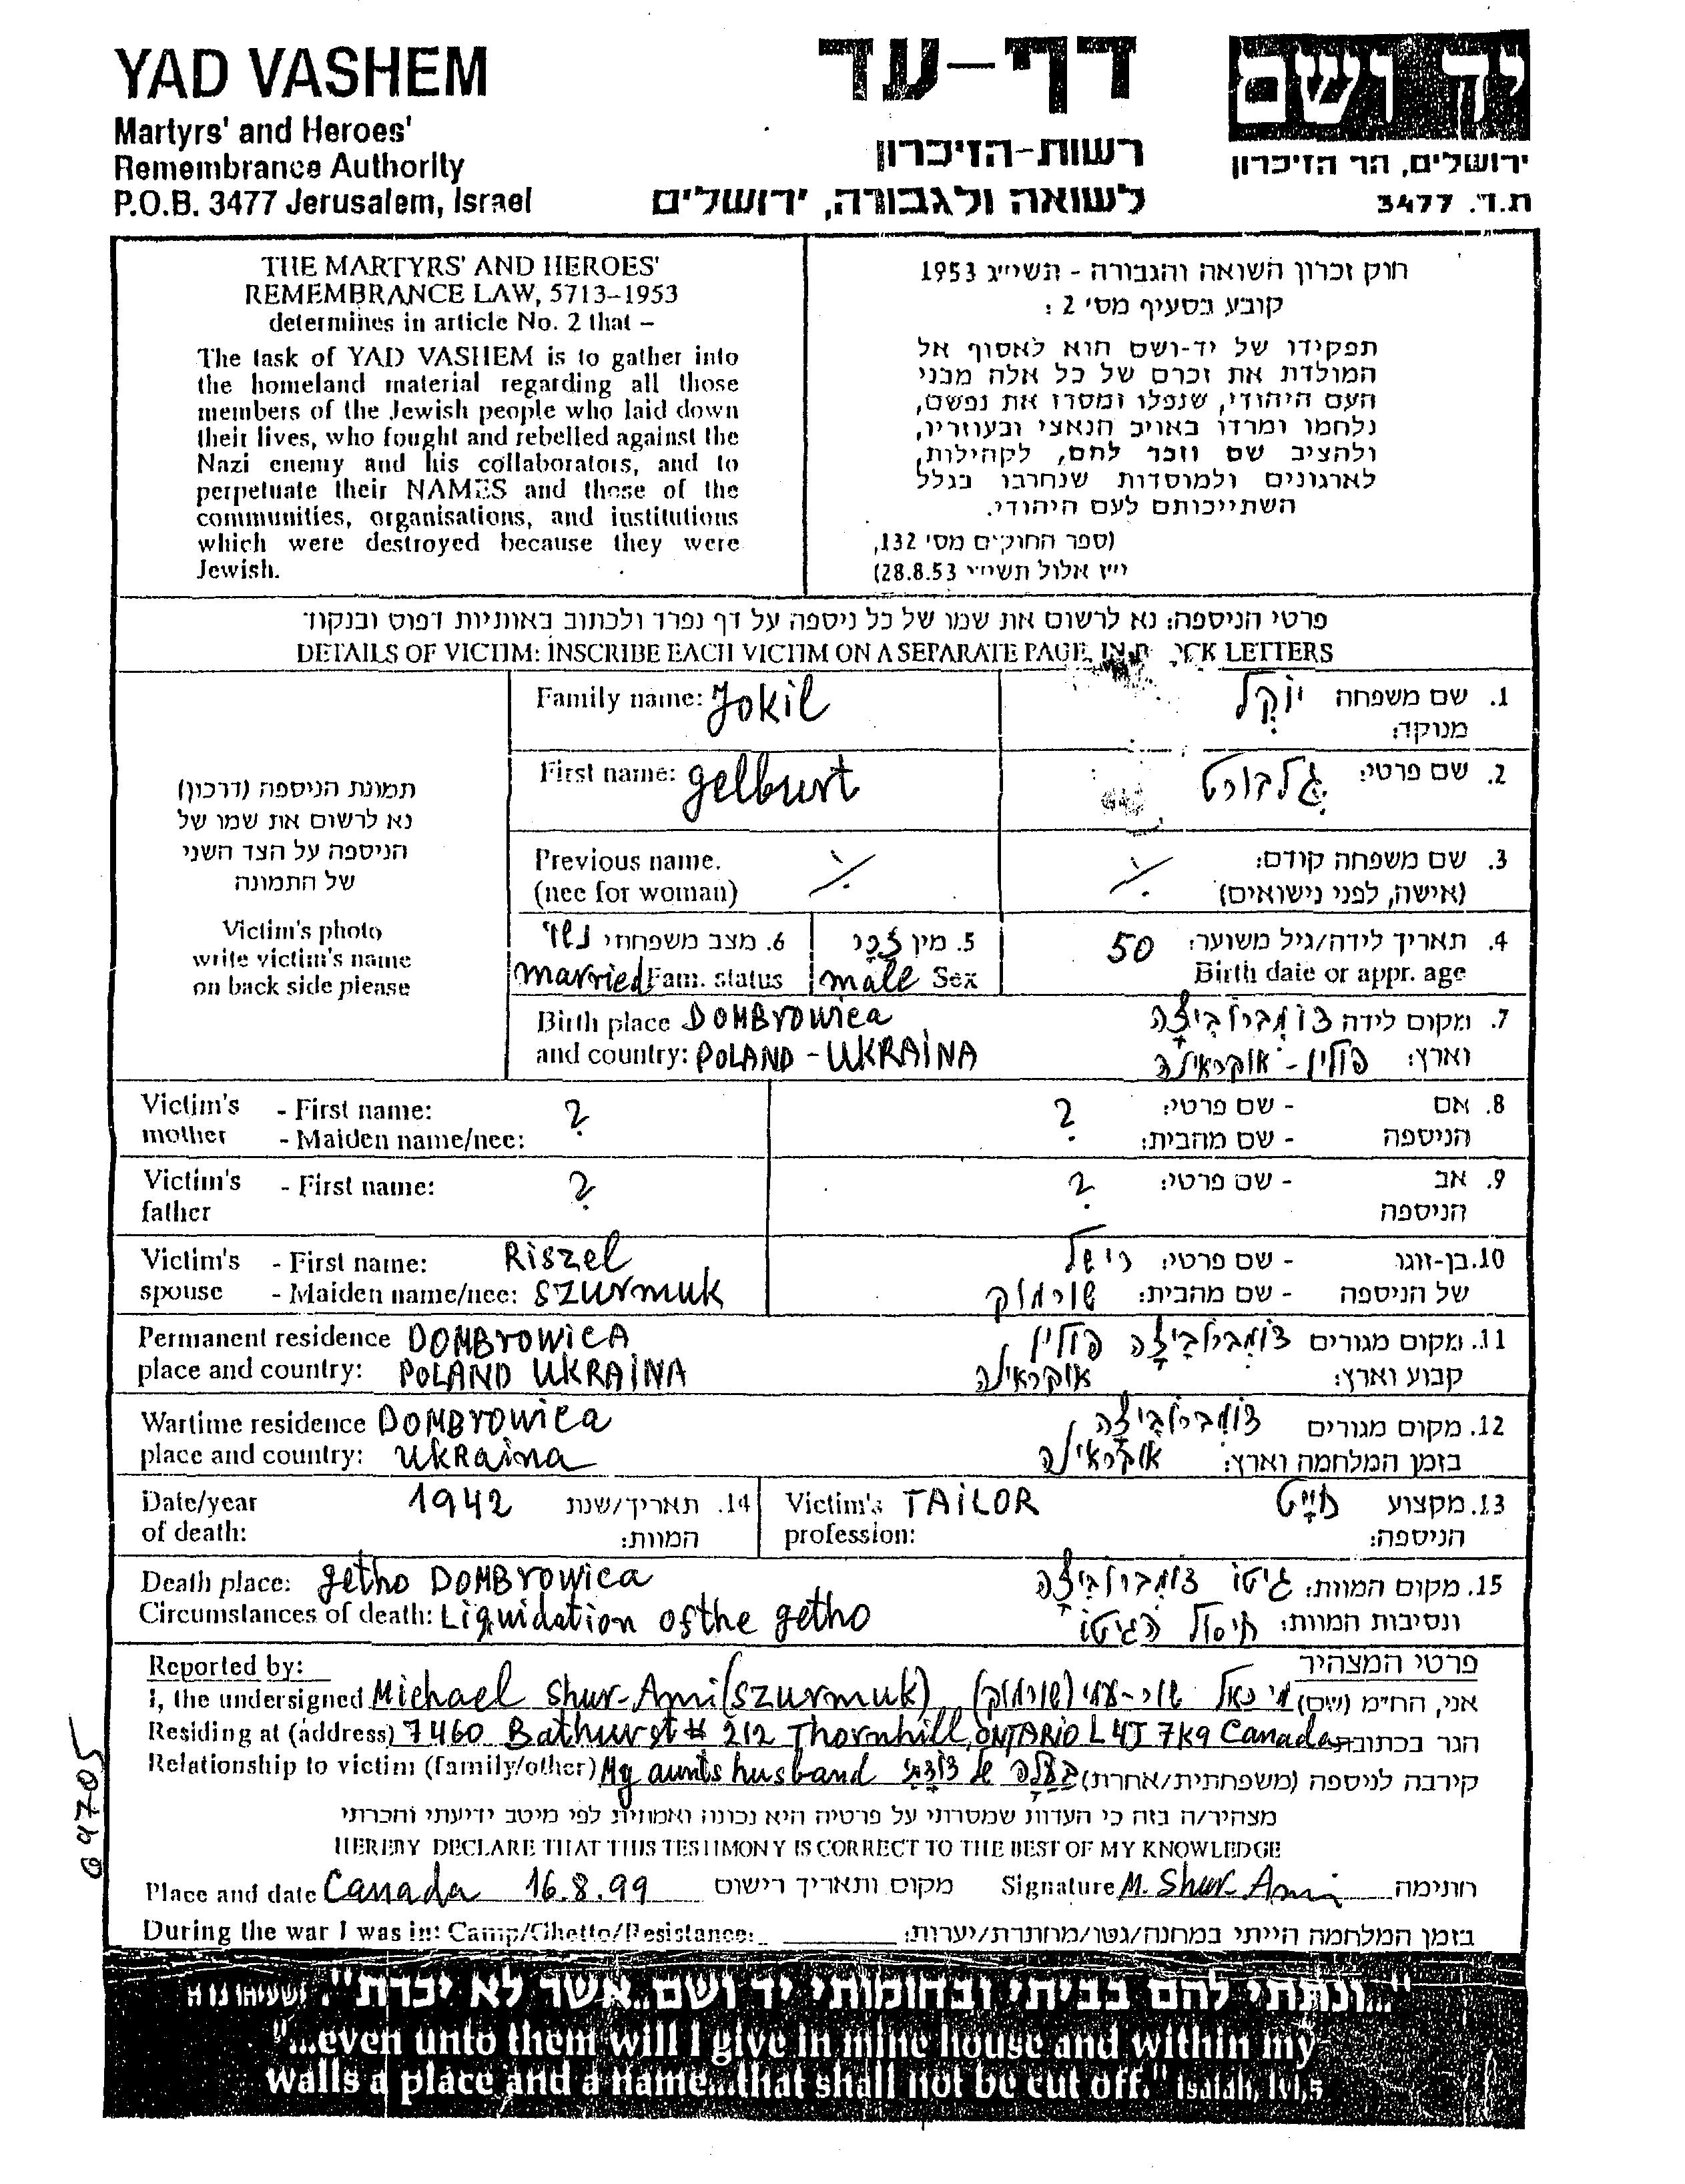 YAD VASHEM
Martyrs' and Heroes'
Remembrance Authority
P.O.B. 3477 Jerusalem, Israel
דף-עד
רשות-הזיכרון
לשואה ולגבורה, ירושלים
יד ושם
ירושלים, הר הזיכרון
ת.ד. 3477
THE MARTYRS' AND HEROES'
REMEMBRANCE LAW, 5713-1953
determines in article No. 2 that –
The task of YAD VASHEM is to gather into
the homeland material regarding all those
members of the Jewish people who laid down
their lives, who fought and rebelled against the
Nazi enemy and his collaborators, and to
perpetuate their NAMES and those of the
communities, organisations, and institutions
which were destroyed because they were
Jewish.
חוק זכרון השואה והגבורה - תשי"ג 1953
קובע בסעיף מס' 2 :
תפקידו של יד-ושם הוא לאסוף אל
המולדת את זכרם של כל אלה מבני
העם היהודי, שנפלו ומסרו את נפשם,
נלחמו ומרדו באויב הנאצי ובעוזריו,
ולהציב שם וזכר להם, לקהילות,
לארגונים ולמוסדות שנחרבו בגלל
השתייכותם לעם היהודי.
(ספר החוקים מס' 132,
י"ז אלול תשי"ג 28.8.53)
פרטי הניספה: נא לרשום את שמו של כל ניספה על דף נפרד ולכתוב באותיות דפוס ובנקוד
DETAILS OF VICTIM: INSCRIBE EACH VICTIM ON A SEPARATE PAGE, IN BLOCK LETTERS
תמונת הניספה (דרכון)
נא לרשום את שמו של
הניספה על הצד השני
של התמונה
Victim's photo
write victim's name
on back side please
Family name: Jokil יוֹקִל 1. שם משפחה
מנוקד:
First name: gelburt גלבורט 2. שם פרטי:
Previous name. ./. ./. 3. שם משפחה קודם:
(nee for woman) (אישה, לפני נישואים)
6. מצב משפחתי נשוי 5. מין זכר 50 4. תאריך לידה/גיל משוער:
married Fam. status male Sex Birth date or appr. age
Birth place DOMBROWICA 7. מקום לידה דומברוביצה
and country: POLAND - UKRAINA וארץ: פולין - אוקראינה
Victim's - First name: ? ? 8. אם - שם פרטי:
mother - Maiden name/nee: הניספה - שם מהבית:
Victim's - First name: ? ? 9. אב - שם פרטי:
father הניספה
Victim's - First name: Riszel 10. בן-זוגו - שם פרטי: רישל
spouse - Maiden name/nee: SZURMUK של הניספה - שם מהבית: שורמוק
Permanent residence DOMBROWICA 11. מקום מגורים דומברוביצה פולין
place and country: POLAND UKRAINA קבוע וארץ: אוקראינה
Wartime residence DOMBROWICA 12. מקום מגורים דומברוביצה
place and country: UKRaina בזמן המלחמה וארץ: אוקראינה
Date/year 1942 14. תאריך/שנת Victim's TAILOR 13. מקצוע חייט
of death: המוות: profession: הניספה:
Death place: getho DOMBROWICA 15. מקום המוות: גיטו דומברוביצה
Circumstances of death: Liquidation of the getho ונסיבות המוות: חיסול הגיטו
Reported by: פרטי המצהיר
I, the undersigned Michael Shur-Ami (SZURMUK) אני, החי"מ (שם) מיכאל שור-עמי (שורמוק)
Residing at (address) 7460 Bathurst # 212 Thornhill, ONTARIO L4J 7K9 Canada הגר בכתובת
Relationship to victim (family/other) My aunts husband קירבה לניספה (משפחתית/אחרת) בעלה של דודתי
מצהיר/ה בזה כי העדות שמסרתי על פרטיה היא נכונה ואמיתית לפי מיטב ידיעתי והכרתי
HEREBY DECLARE THAT THIS TESTIMONY IS CORRECT TO THE BEST OF MY KNOWLEDGE
Place and date Canada 16.8.99 מקום ותאריך רישום Signature M. Shur-Ami חתימה
During the war I was in: Camp/Ghetto/Resistance: בזמן המלחמה הייתי במחנה/גטו/מחתרת/יערות:
"...ונתתי להם בביתי ובחומותי יד ושם...אשר לא יכרת". ישעיהו נו ה
"...even unto them will I give in mine house and within my
walls a place and a name...that shall not be cut off." Isaiah, lvi,5
09705